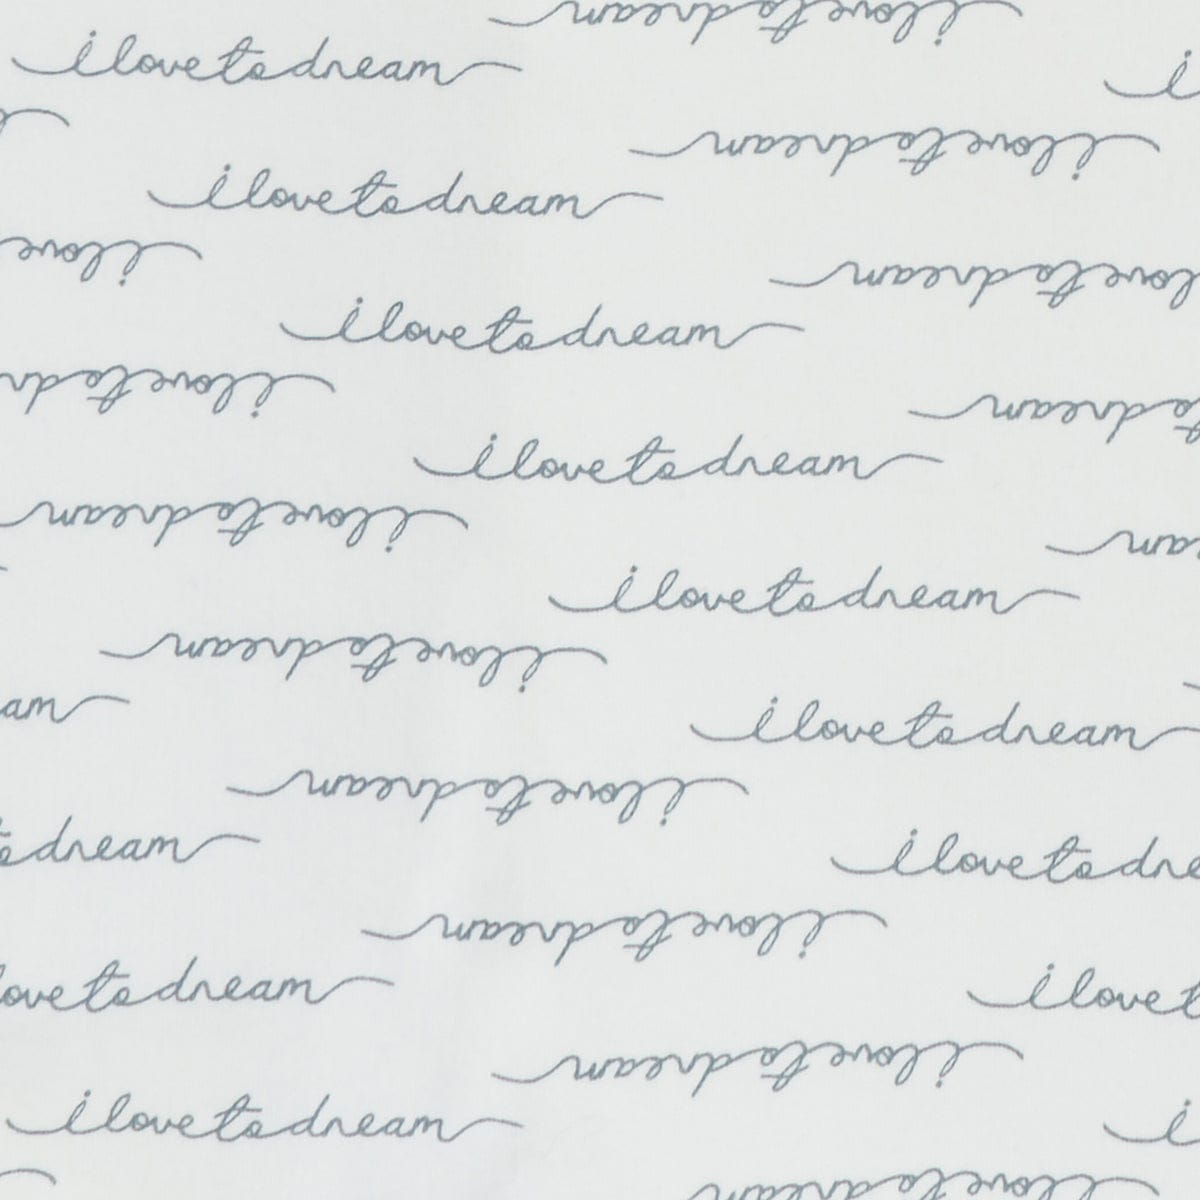 i love to dream
i love to dream
i
i love to dream
i love to dream
i love
love to dream
i love to dream
i love to dr
to dream
i love to dream
i love to dream
am
i love to dream
i love to dream
am
i love to dream
i love to dream
to dream
i love to dre
i love to dream
love to dream
i love t
i love to dream
i love to dream
i
i love to dream